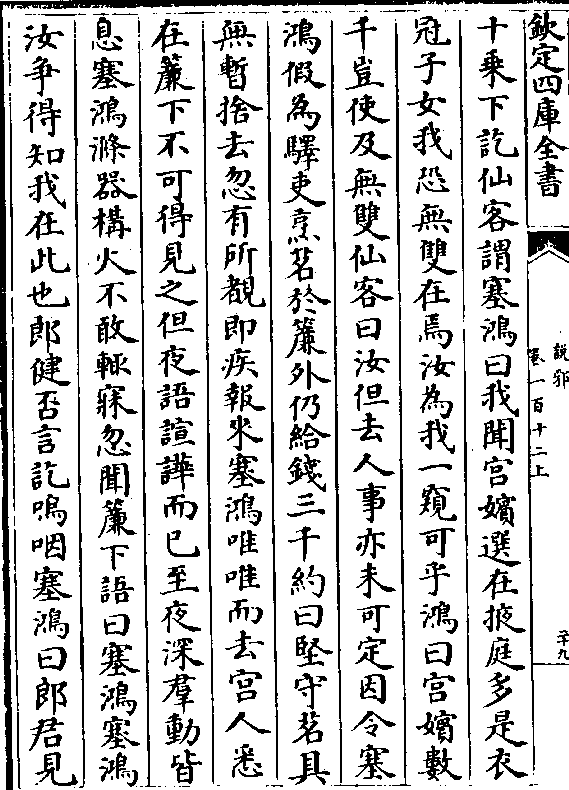 欽定四庫全書
說郛
卷一百十二上
二十九
十乗下訖仙客謂塞鴻曰我聞宫嬪選在掖庭多是衣
冠子女我恐無雙在焉汝為我一窺可乎鴻曰宫嬪數
千豈便及無雙仙客曰汝但去人事亦未可定因令塞
鴻假為驛吏烹茗於簾外仍給錢三千約曰堅守茗具
無暫捨去忽有所覩即疾報來塞鴻唯唯而去宫人悉
在簾下不可得見之但夜語諠譁而已至夜深羣動皆
息塞鴻滌器構火不敢輒寐忽聞簾下語曰塞鴻塞鴻
汝争得知我在此也郎健否言訖嗚咽塞鴻曰郎君見